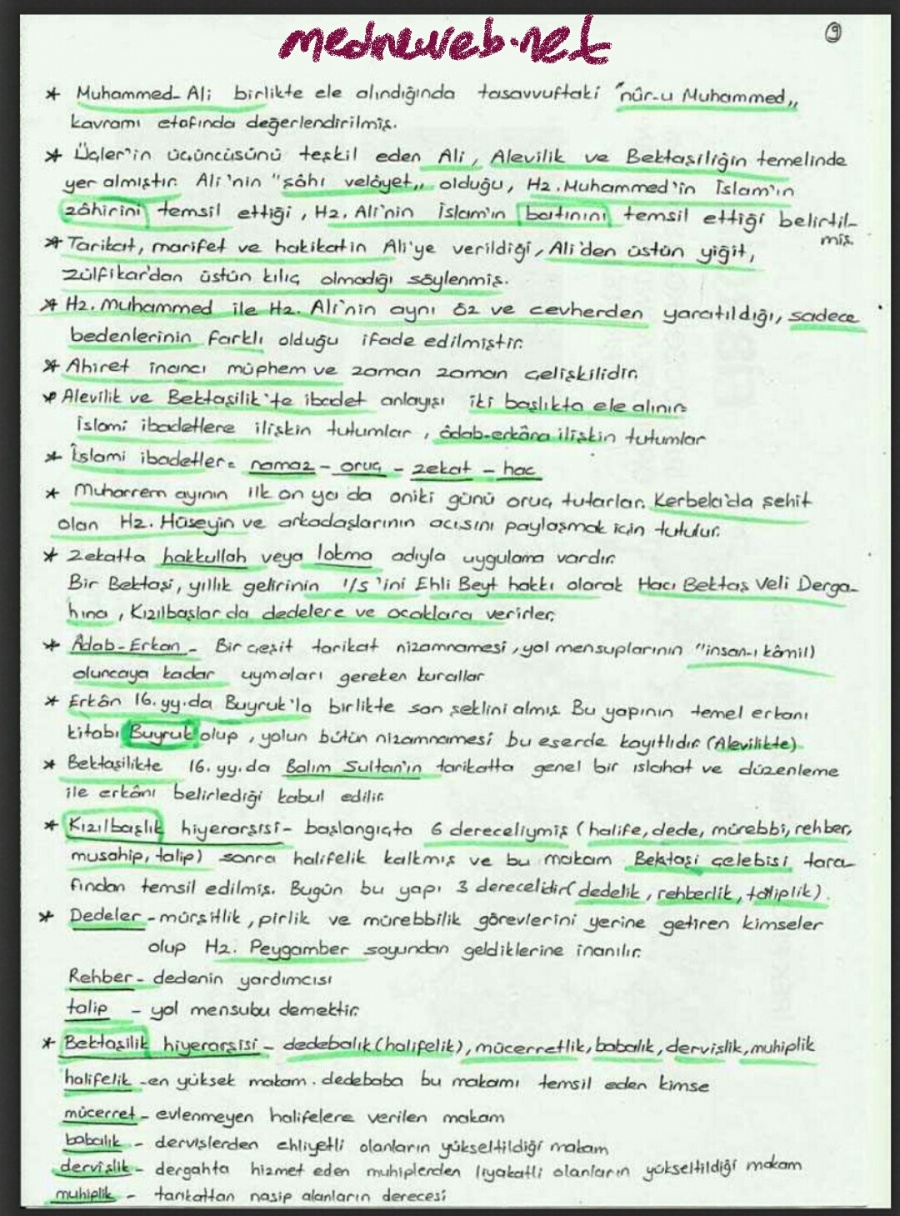 medneweb.net
9
* Muhammed-Ali birlikte ele alındığında tasavvuftaki "nûr-u Muhammed„
kavramı etafında değerlendirilmiş.
* Üçler'in üçüncüsünü teşkil eden Ali, Alevilik ve Bektaşiliğin temelinde
yer almıştır. Ali'nin "şâhı velâyet„ olduğu, Hz. Muhammed'in İslam'ın
zâhirini temsil ettiği, Hz. Ali'nin İslam'ın batınını temsil ettiği belirtil-
miş.
* Tarikat, marifet ve hakikatin Ali'ye verildiği, Ali'den üstün yiğit,
zülfikar'dan üstün kılıç olmadığı söylenmiş.
* Hz. Muhammed ile Hz. Ali'nin aynı öz ve cevherden yaratıldığı, sadece
bedenlerinin farklı olduğu ifade edilmiştir.
* Ahiret inancı müphem ve zaman zaman çelişkilidir.
* Alevilik ve Bektaşilik'te ibadet anlayışı iki başlıkta ele alınır=
İslami ibadetlere ilişkin tutumlar, âdab-erkâna ilişkin tutumlar
* İslami ibadetler= namaz - oruç - zekat - hac
* Muharrem ayının ilk on ya da oniki günü oruç tutarlar. Kerbela'da şehit
olan Hz. Hüseyin ve arkadaşlarının acısını paylaşmak için tutulur.
* Zekatta hakkullah veya lokma adıyla uygulama vardır.
Bir Bektaşi, yıllık gelirinin 1/5'ini Ehli Beyt hakkı olarak Hacı Bektaş Veli Derga-
hına, Kızılbaşlar da dedelere ve ocaklara verirler.
* Âdab-Erkan - Bir çeşit tarikat nizamnamesi, yol mensuplarının "insan-ı kâmil)
oluncaya kadar uymaları gereken kurallar
* Erkân 16. yy.da Buyruk'la birlikte son şeklini almış. Bu yapının temel erkanı
kitabı Buyruk olup, yolun bütün nizamnamesi bu eserde kayıtlıdır. (Alevilikte)
* Bektaşilikte 16. yy.da Balım Sultan'ın tarikatta genel bir ıslahat ve düzenleme
ile erkânı belirlediği kabul edilir.
* Kızılbaşlık hiyerarşisi - başlangıçta 6 dereceliymiş (halife, dede, mürebbi, rehber,
musahip, talip) sonra halifelik kalkmış ve bu makam Bektaşi çelebisi tara-
fından temsil edilmiş. Bugün bu yapı 3 derecelidir (dedelik, rehberlik, taliplik).
* Dedeler - mürşitlik, pirlik ve mürebbilik görevlerini yerine getiren kimseler
olup Hz. Peygamber soyundan geldiklerine inanılır.
Rehber - dedenin yardımcısı
talip - yol mensubu demektir.
* Bektaşilik hiyerarşisi - dedebalık (halifelik), mücerretlik, babalık, dervişlik, muhiplik
halifelik - en yüksek makam. dedebaba bu makamı temsil eden kimse
mücerret - evlenmeyen halifelere verilen makam
babalık - dervişlerden ehliyetli olanların yükseltildiği makam
dervişlik - dergahta hizmet eden muhiplerden liyakatli olanların yükseltildiği makam
muhiplik - tarikattan nasip alanların derecesi